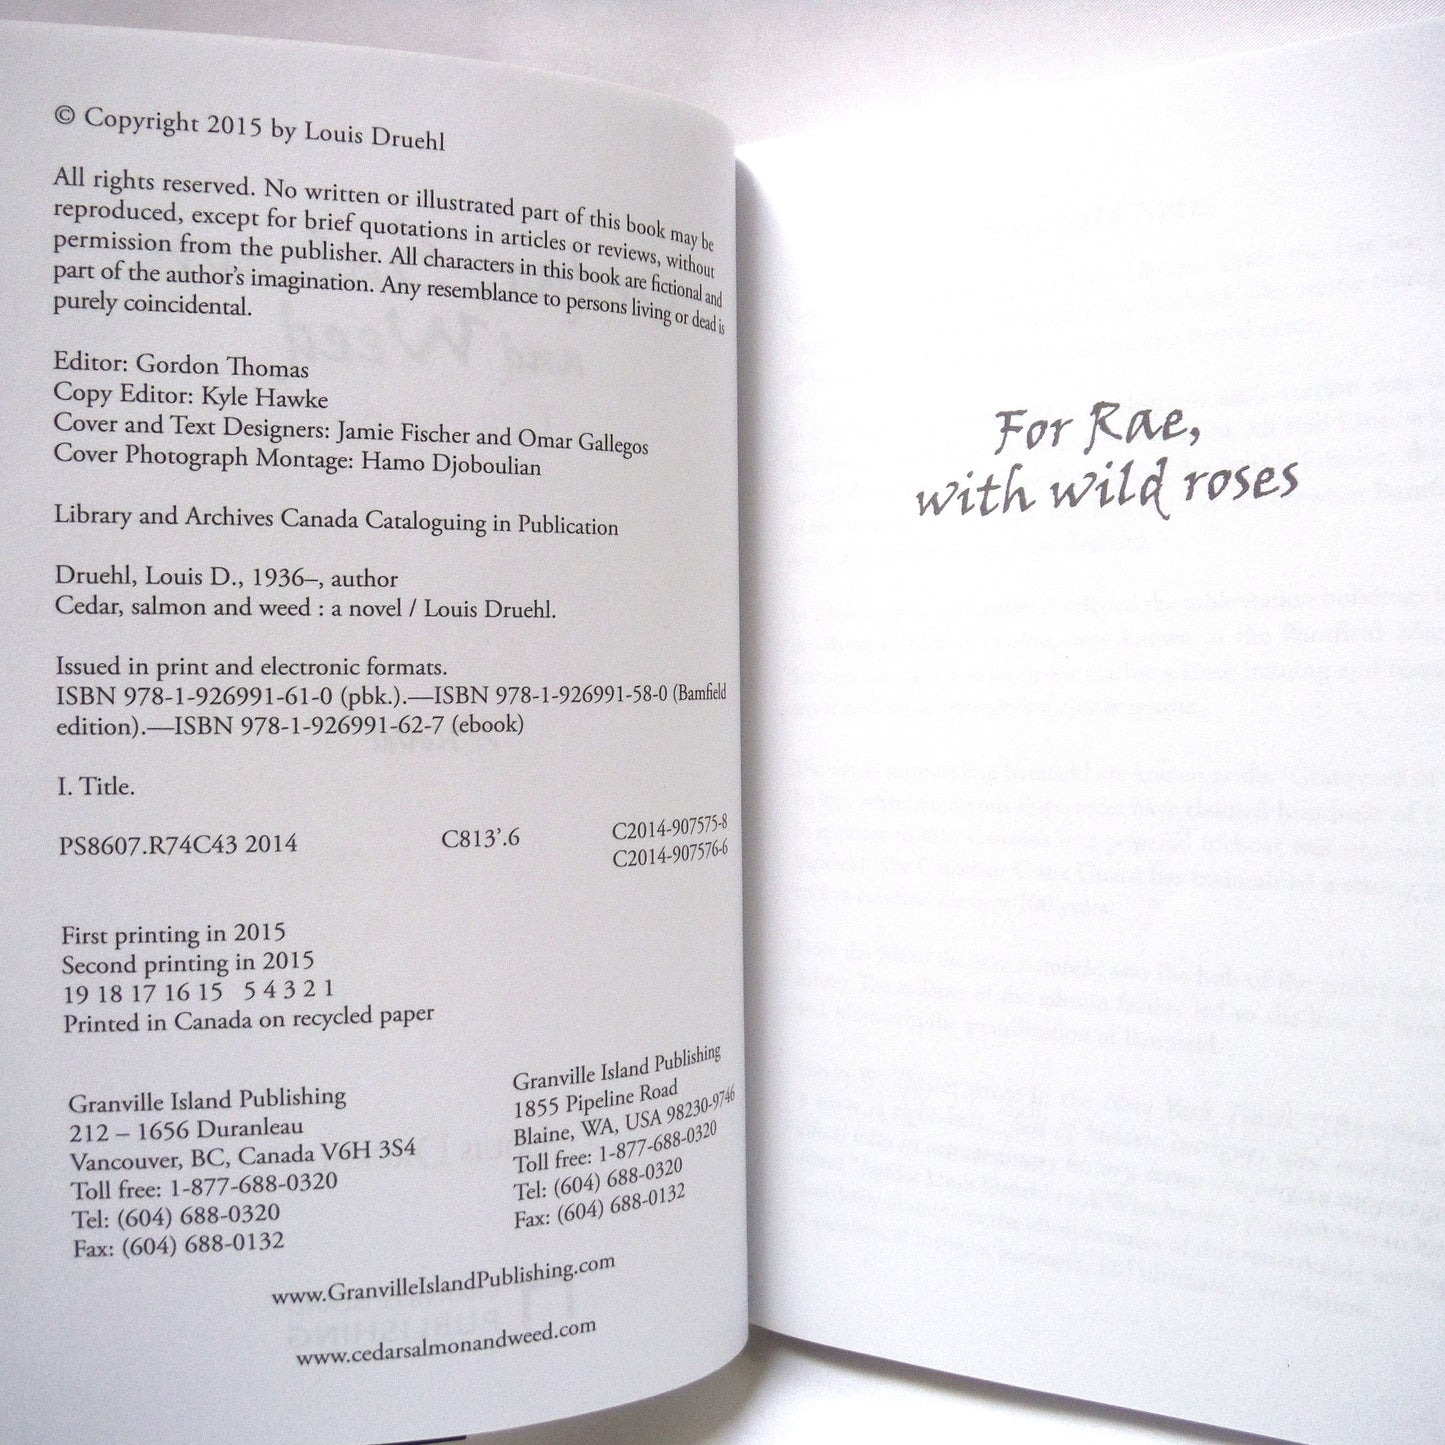 © Copyright 2015 by Louis Druehl
All rights reserved. No written or illustrated part of this book may be
reproduced, except for brief quotations in articles or reviews, without
permission from the publisher. All characters in this book are fictional and
part of the author's imagination. Any resemblance to persons living or dead is
purely coincidental.
Editor: Gordon Thomas
Copy Editor: Kyle Hawke
Cover and Text Designers: Jamie Fischer and Omar Gallegos
Cover Photograph Montage: Hamo Djoboulian
Library and Archives Canada Cataloguing in Publication
Druehl, Louis D., 1936–, author
Cedar, salmon and weed : a novel / Louis Druehl.
Issued in print and electronic formats.
ISBN 978-1-926991-61-0 (pbk.).—ISBN 978-1-926991-58-0 (Bamfield
edition).—ISBN 978-1-926991-62-7 (ebook)
I. Title.
PS8607.R74C43 2014 C813'.6 C2014-907575-8
C2014-907576-6
First printing in 2015
Second printing in 2015
19 18 17 16 15 5 4 3 2 1
Printed in Canada on recycled paper
Granville Island Publishing
212 – 1656 Duranleau
Vancouver, BC, Canada V6H 3S4
Toll free: 1-877-688-0320
Tel: (604) 688-0320
Fax: (604) 688-0132
Granville Island Publishing
1855 Pipeline Road
Blaine, WA, USA 98230-9746
Toll free: 1-877-688-0320
Tel: (604) 688-0320
Fax: (604) 688-0132
www.GranvilleIslandPublishing.com
www.cedarsalmonandweed.com
For Rae,
with wild roses